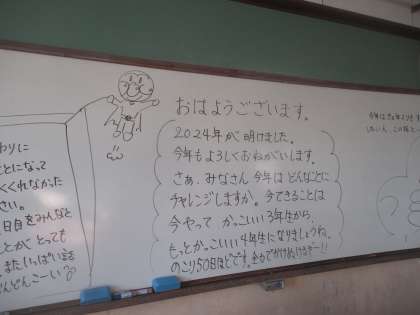 おはようございます。
2024年が明けました。
今年もよろしくおねがいします。
さあ、みなさん今年はどんなことに
チャレンジしますか。今できることは
今やって かっこいい3年生から、
もっとかっこいい4年生になりましょうね。
のこり50日ほどです。全力でかけぬけるぞー!!
わりに
ことになって
くれなかった
さい。
日目をみんなと
とにかく とっても
またいっぱい話を
どんどんこーい